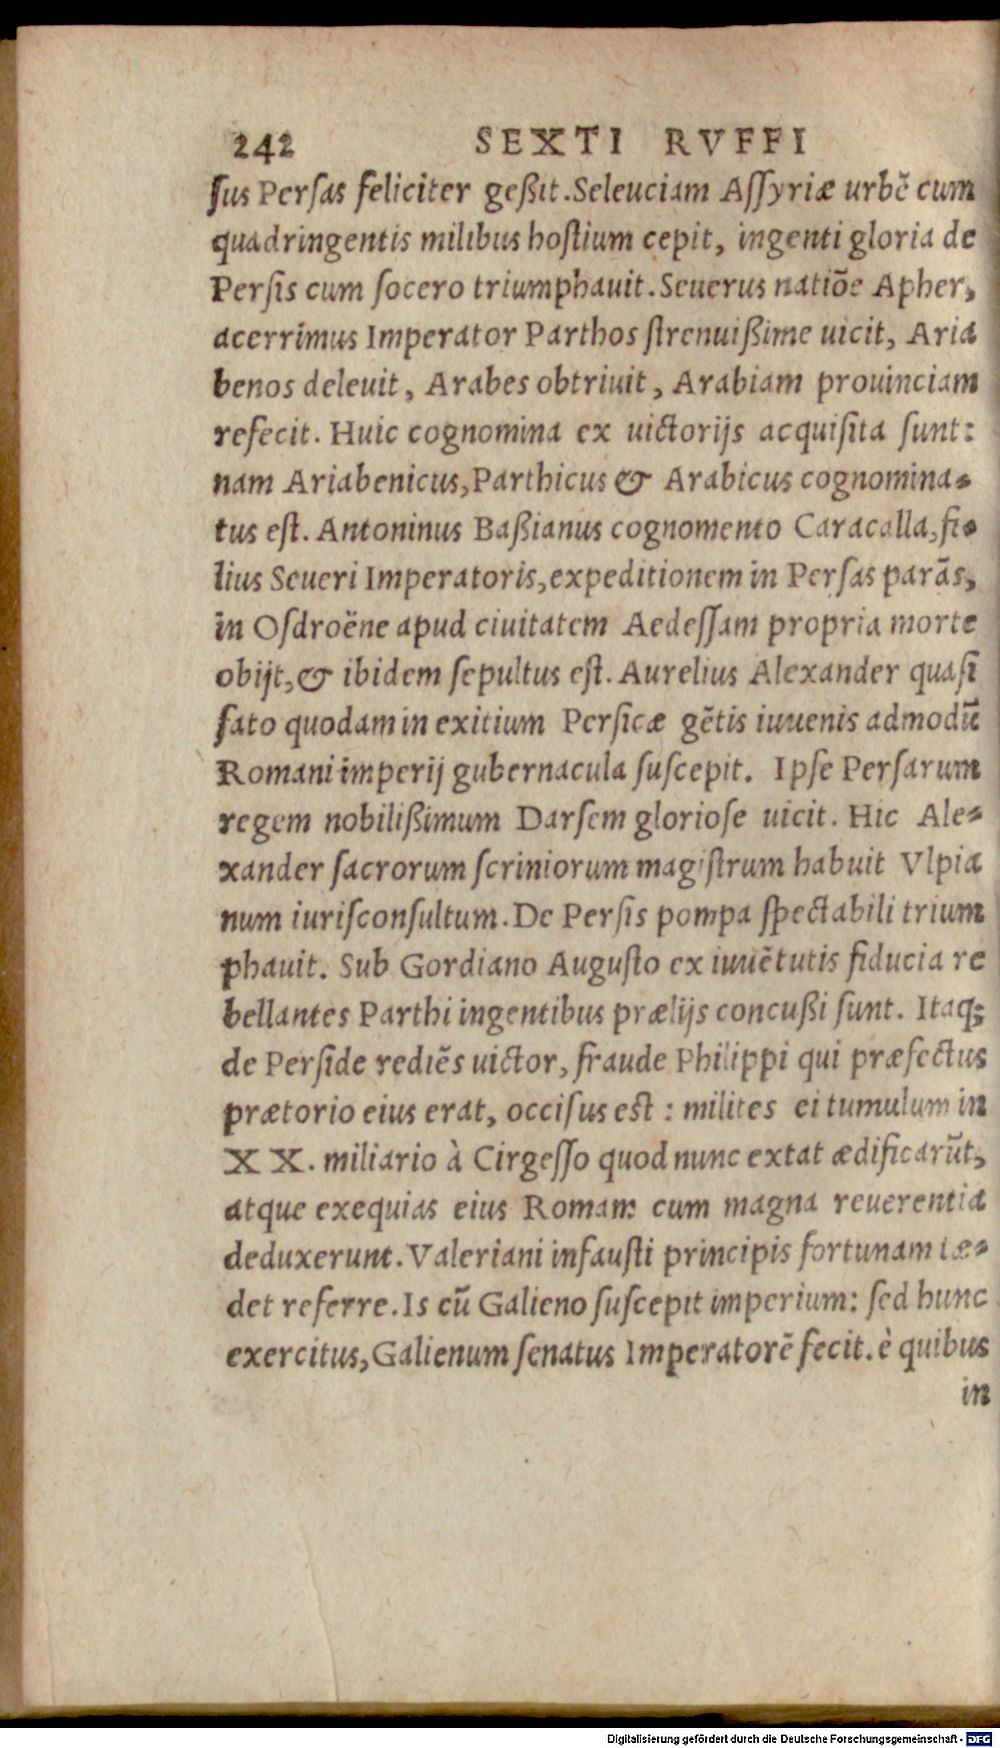 242 SEXTI RVFFI
ſus Perſas feliciter geßit. Seleuciam Aſſyriæ urbẽ cum
quadringentis milibus hoſtium cepit, ingenti gloria de
Perſis cum ſocero triumphauit. Seuerus natiõe Apher,
acerrimus Imperator Parthos ſtrenuißime uicit, Aria
benos deleuit, Arabes obtriuit, Arabiam prouinciam
refecit. Huic cognomina ex uictorijs acquiſita ſunt:
nam Ariabenicus, Parthicus & Arabicus cognomina-
tus eſt. Antoninus Baßianus cognomento Caracalla, fi-
lius Seueri Imperatoris, expeditionem in Perſas parãs,
in Oſdroëne apud ciuitatem Aedeſſam propria morte
obijt, & ibidem ſepultus eſt. Aurelius Alexander quaſi
fato quodam in exitium Perſicæ gẽtis iuuenis admodũ
Romani imperij gubernacula ſuſcepit. Ipſe Perſarum
regem nobilißimum Darſem glorioſe uicit. Hic Ale-
xander ſacrorum ſcriniorum magiſtrum habuit Vlpia
num iuriſconſultum. De Perſis pompa ſpectabili trium
phauit. Sub Gordiano Auguſto ex iuuẽtutis fiducia re
bellantes Parthi ingentibus prælijs concußi ſunt. Itaq;
de Perſide rediẽs uictor, fraude Philippi qui præfectus
prætorio eius erat, occiſus est : milites ei tumulum in
XX. miliario à Cirgeſſo quod nunc extat ædificarũt,
atque exequias eius Romam cum magna reuerentia
deduxerunt. Valeriani infauſti principis fortunam tæ-
det referre. Is cũ Galieno ſuſcepit imperium: ſed hunc
exercitus, Galienum ſenatus Imperatorẽ fecit. è quibus
in
Digitalisierung gefördert durch die Deutsche Forschungsgemeinschaft - DFG